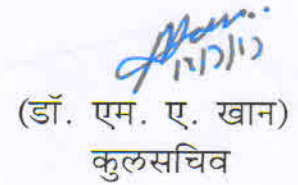 (डॉ. एम. ए. खान)
कुलसचिव